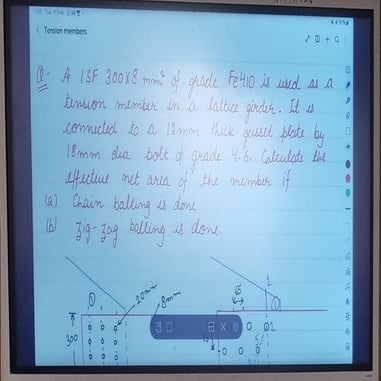 Tension members
Q- A ISF 300X8 mm² of grade Fe410 is used as a
tension member in a lattice girder. It is
connected to a 12mm thick gusset plate by
18mm dia bolt of grade 4.6. Calculate the
effective net area of the member if
(a) Chain bolting is done
(b) Zig-zag bolting is done.
20mm
8mm
65
300